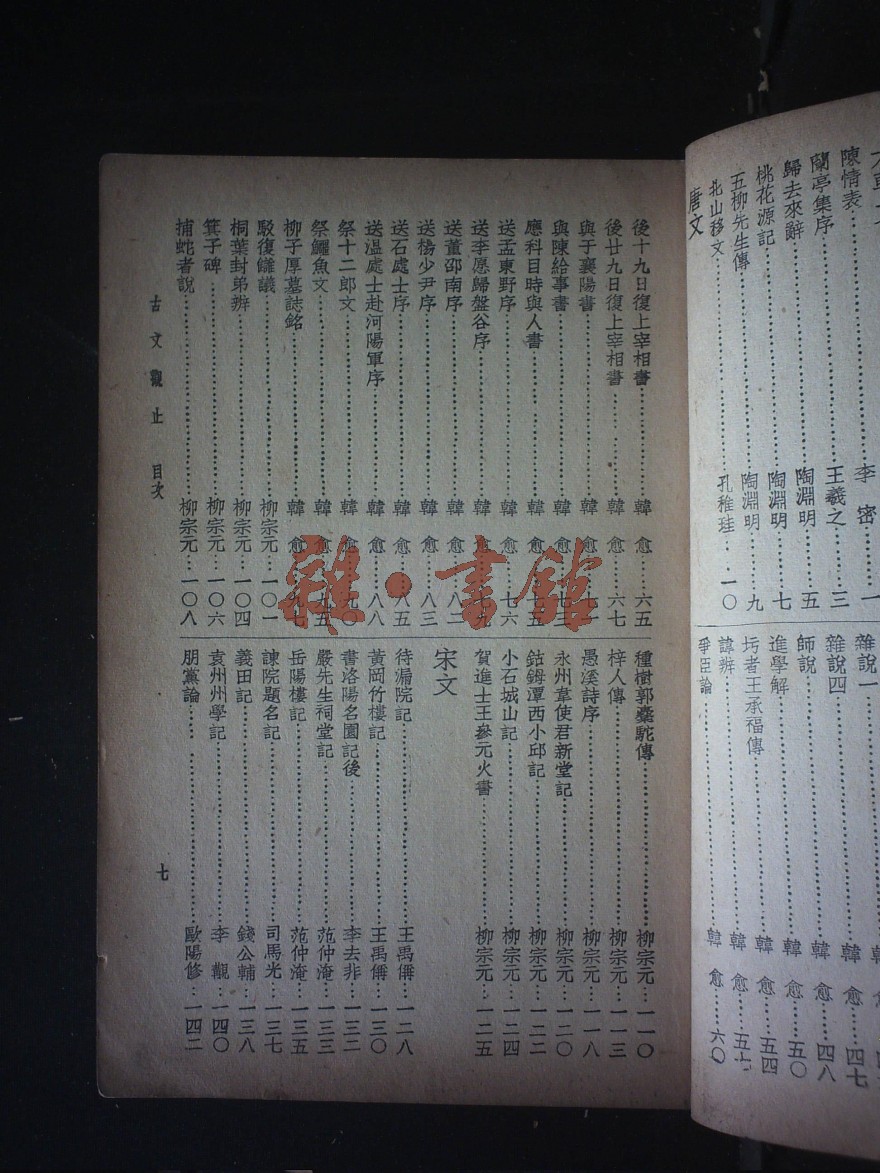 陳情表……李 密…一
蘭亭集序……王羲之…三
歸去來辭……陶淵明…五
桃花源記……陶淵明…七
五柳先生傳……陶淵明…九
北山移文……孔稚珪…一〇
唐文
雜說一
雜說四……韓 愈…四七
師說……韓 愈…四八
進學解……韓 愈…五〇
圬者王承福傳……韓 愈…五四
諱辨……韓 愈…五七
爭臣論……韓 愈…六〇
後十九日復上宰相書……韓 愈…六五
後廿九日復上宰相書……韓 愈…六七
與于襄陽書……韓 愈
與陳給事書……韓 愈
應科目時與人書……韓 愈
送孟東野序……韓 愈…七六
送李愿歸盤谷序……韓 愈
送董邵南序……韓 愈…八二
送楊少尹序……韓 愈…八三
送石處士序……韓 愈…八五
送温處士赴河陽軍序……韓 愈…八八
祭十二郎文……韓 愈…九〇
祭鱷魚文……韓 愈…九五
柳子厚墓誌銘……韓 愈…九七
駁復讎議……柳宗元…一〇一
桐葉封弟辨……柳宗元…一〇四
箕子碑……柳宗元…一〇六
捕蛇者說……柳宗元…一〇八
種樹郭橐駝傳……柳宗元…一一〇
梓人傳……柳宗元…一一三
愚溪詩序……柳宗元…一一八
永州韋使君新堂記……柳宗元…一二〇
鈷鉧潭西小邱記……柳宗元…一二二
小石城山記……柳宗元…一二四
賀進士王參元火書……柳宗元…一二五
宋文
待漏院記……王禹偁…一二八
黃岡竹樓記……王禹偁…一三〇
書洛陽名園記後……李去非…一三二
嚴先生祠堂記……范仲淹…一三三
岳陽樓記……范仲淹…一三五
諫院題名記……司馬光…一三七
義田記……錢公輔…一三八
袁州州學記……李 覯…一四〇
朋黨論……歐陽修…一四二
古文觀止 目次
七
雜·書館